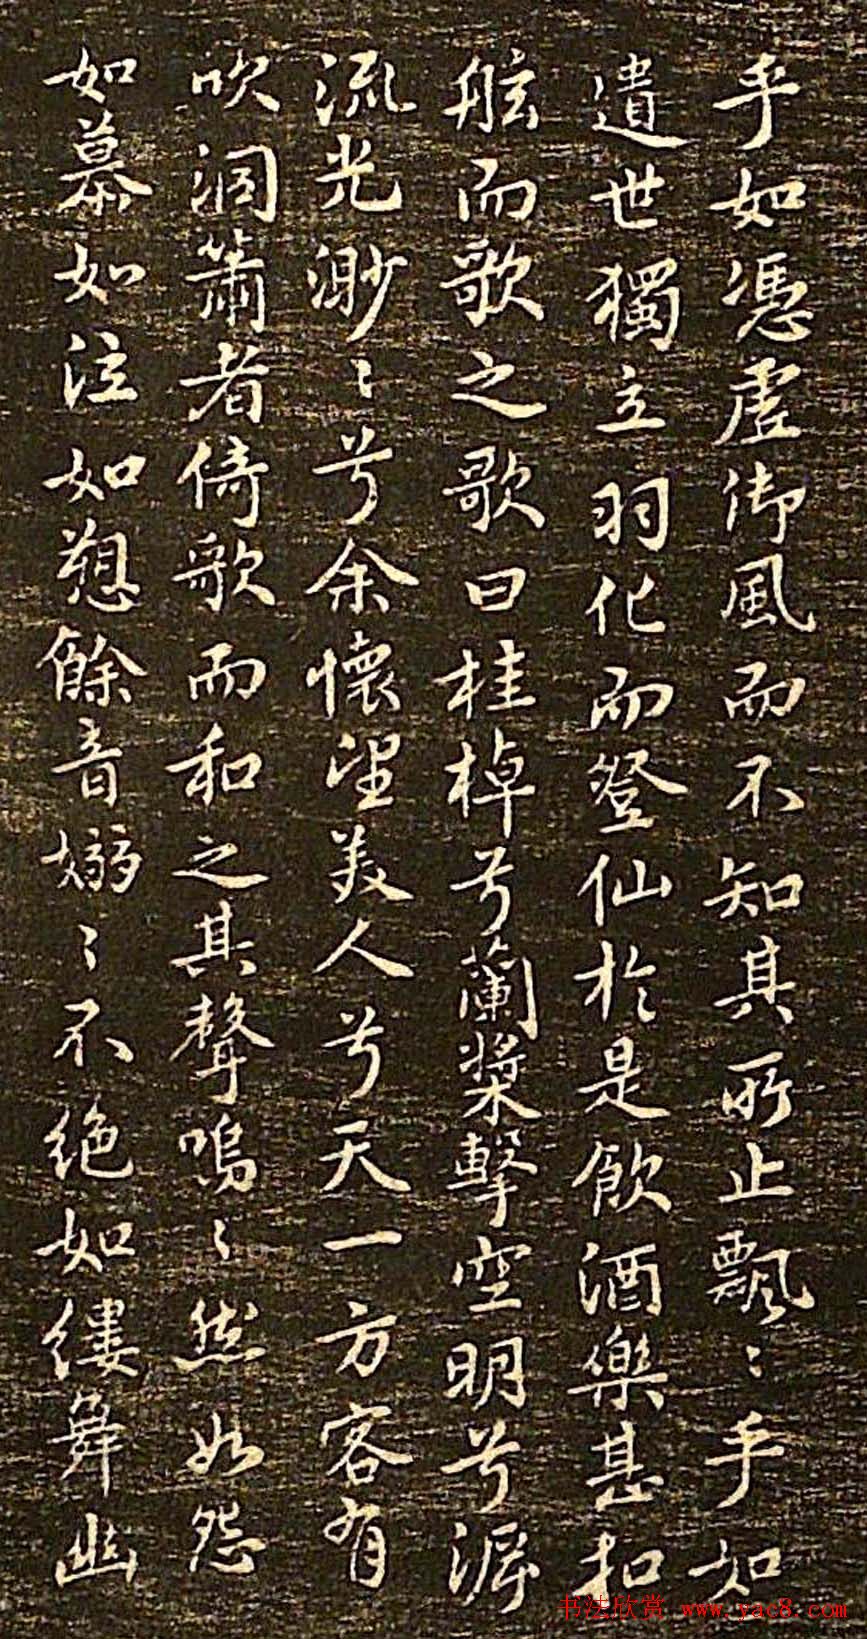 乎如憑虛御風而不知其所止飄〻乎如
遺世獨立羽化而登仙於是飲酒樂甚扣
舷而歌之歌曰桂棹兮蘭槳擊空明兮泝
流光渺〻兮余懷望美人兮天一方客有
吹洞簫者倚歌而和之其聲嗚〻然如怨
如慕如泣如愬餘音嫋〻不絕如縷舞幽
书法欣赏 www.yac8.com